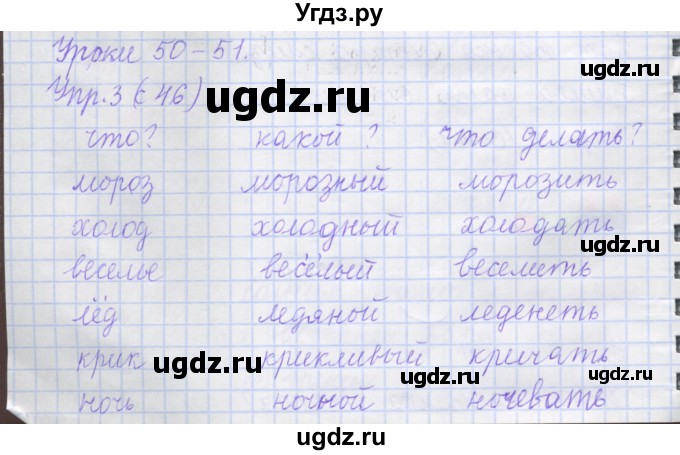 Угдз.ру
Уроки 50-51.
Упр.3 (с 46)
ugdz.ru
что? какой? что делать?
мороз морозный морозить
ugdz.ru ugdz.ru
холод холодный холодать
веселье весёлый веселеть
лёд ледяной леденеть
крик крикливый кричать
ugdz.ru ugdz.ru
ugdz.ru ugdz.ru
ночь ночной ночевать
ugdz.ru